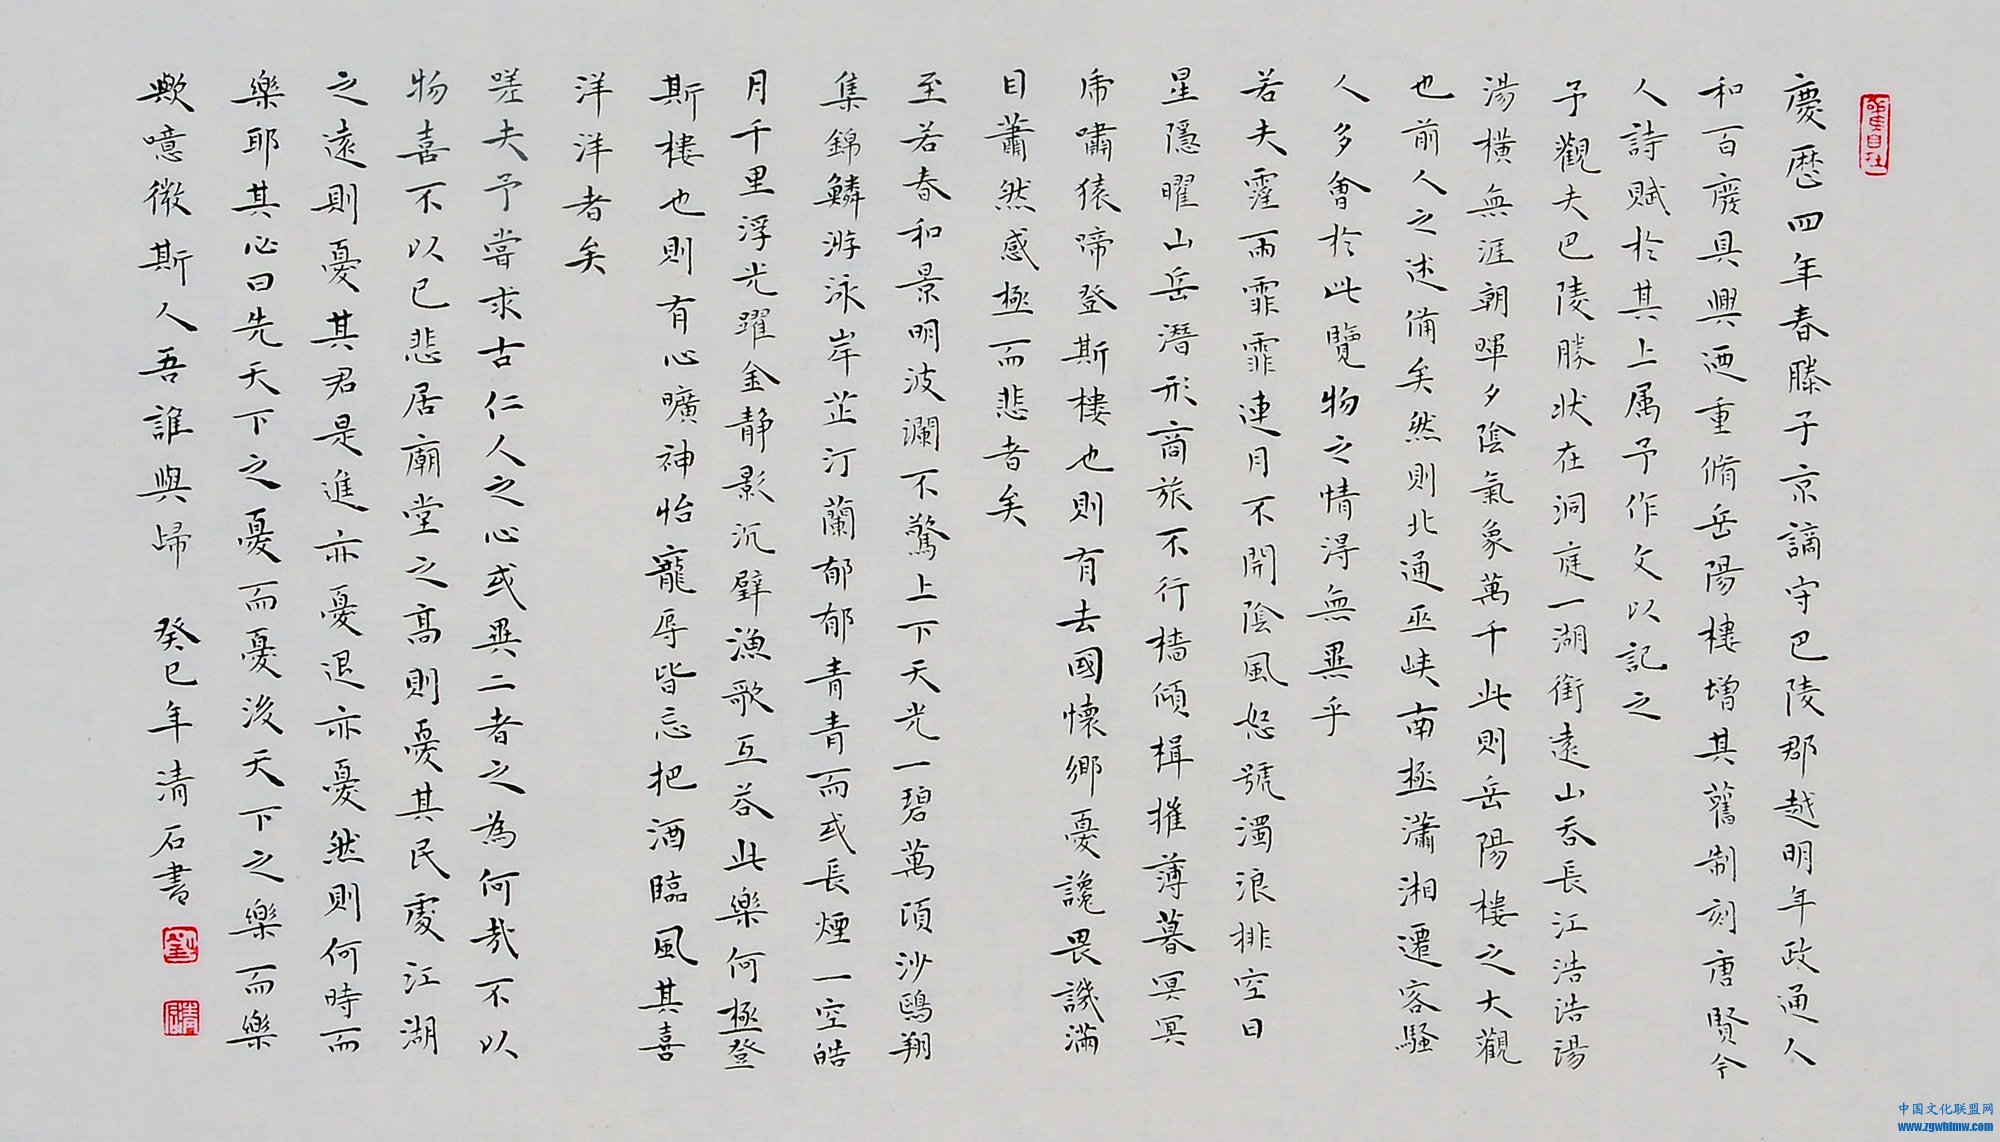 慶厯四年春滕子京謫守巴陵郡越明年政通人
和百廢具興迺重脩岳陽樓增其舊制刻唐賢今
人詩賦於其上属予作文以記之
予觀夫巴陵勝状在洞庭一湖銜遠山吞長江浩浩湯
湯横無涯朝暉夕陰氣象萬千此則岳陽樓之大觀
也前人之述備矣然則北通巫峡南極瀟湘遷客騷
人多會於此覽物之情得無異乎
若夫霪雨霏霏連月不開陰風怒號濁浪排空日
星隱曜山岳潛形商旅不行檣傾楫摧薄暮冥冥
虎嘯猿啼登斯樓也則有去國懷鄉憂讒畏譏滿
目蕭然感極而悲者矣
至若春和景明波瀾不驚上下天光一碧萬頃沙鷗翔
集錦鱗游泳岸芷汀蘭郁郁青青而或長煙一空皓
月千里浮光躍金静影沉璧漁歌互答此樂何極登
斯樓也則有心曠神怡寵辱皆忘把酒臨風其喜
洋洋者矣
嗟夫予嘗求古仁人之心或異二者之為何哉不以
物喜不以己悲居廟堂之高則憂其民處江湖
之遠則憂其君是進亦憂退亦憂然則何時而
樂耶其必曰先天下之憂而憂後天下之樂而樂
歟噫微斯人吾誰與歸 癸巳年清石書
中国文化联盟网
www.zgwhlmw.com